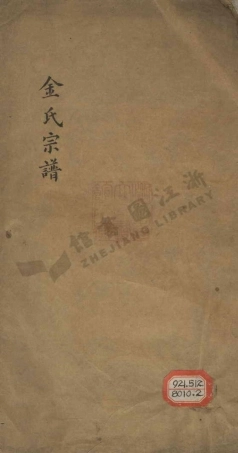 金氏宗譜
浙江圖書館
ZHEJIANG LIBRARY
924.512
8010.2